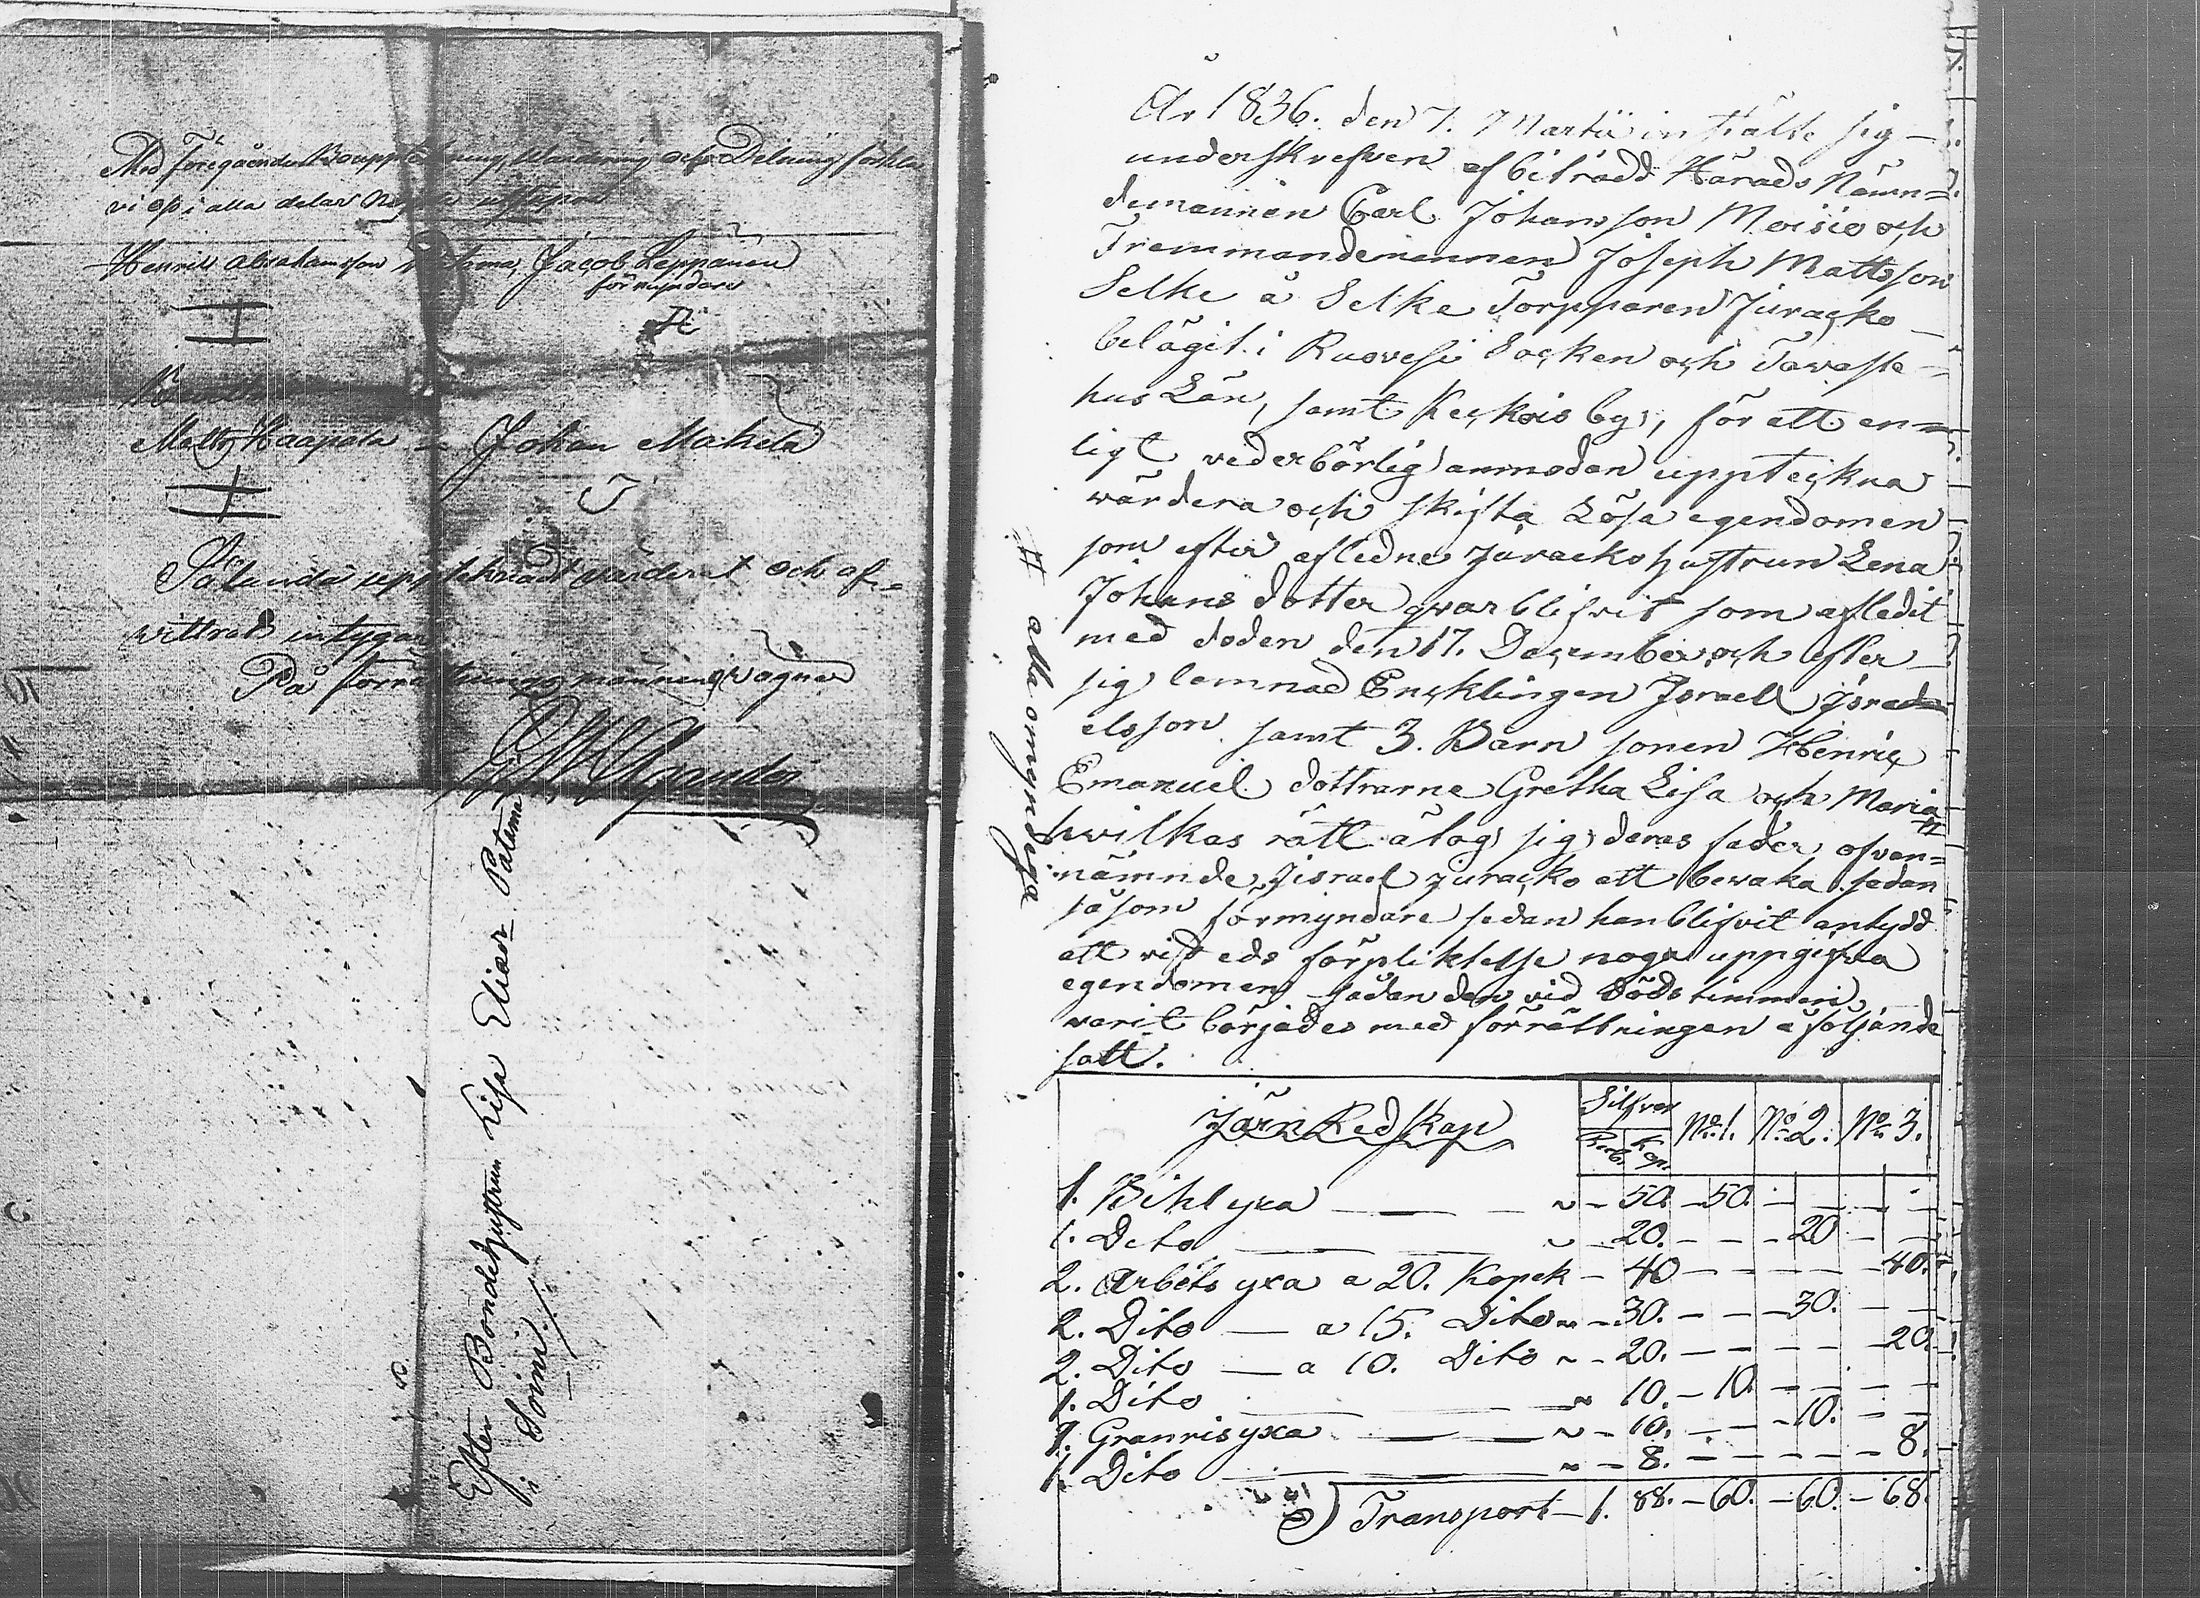 Med Föregående Bouppteckning, Wärdering och Delning förklara
vi oss i alla delar
Henrik Abrahamsson Jacob Leppänen
förmyndare
Matts Haapala Johan Mäkelä
Sålunda upptecknadt värderat och af-
vittrat intygar
På förrättningsmännens vägnar
Efter Bondehustrun Lisa Eliaer Patama
i Soini
År 1836. den 7. Martii infälte sig
underskrefven af biträdd Härads Näwn=
demannen Carl Johansson Moisio och
Fremmandemannen Joseph Mattsson
Selke å Selke Torpparen Juracko
belägit i Ruovesi Socken och Tawaste=
hus Län, samt Keckois by, för att en=
ligt vederbörlig anmodan uppteckna
värdera och skifta Lösa egendomen
som efter afledne Juracko hustrun Lena
Johans dotter qvarblifvit som afledit
med döden den 17. December och efter
sig lemnad Encklingen Israel Isra
elsson samt 3. Barn sonen Henric
Emanuel dottrarne Gretha Lisa och Maria #
# alla omyndiga
hvilkas rätt åtog sig deras fader ofvan=
nämnde Jisrael Juracko att bewaka sedan
såsom förmyndare sedan han blifvit antydd
att vid eds förpliktelse noga uppgifva
egendomen sådan den vid Döds timmen
varit börjades med förrättningen å följande
sätt.
Järn Redskap Silfver No 1. No 2. No 3.
Rub. Kop.
1. Bihlyxa ~ - 50. - 50. - - - -
1. Dito ~ - 20. - - - 20 - -
2. Arbets yxa a 20. Kopek - 40 - - - - - 40.
2. Dito - a 15. Dito ~ - 30. - - - 30. - -
2. Dito - a 10. Dito ~ - 20. - - - - - 20.
1. Dito ~ 10. - 10. - - - -
1. Granrisyxa ~ - 10. - - - 10. - -
1. Dito ~ - 8. - - - - - 8.
Transport - 1. 88. - 60. - 60. - 68.